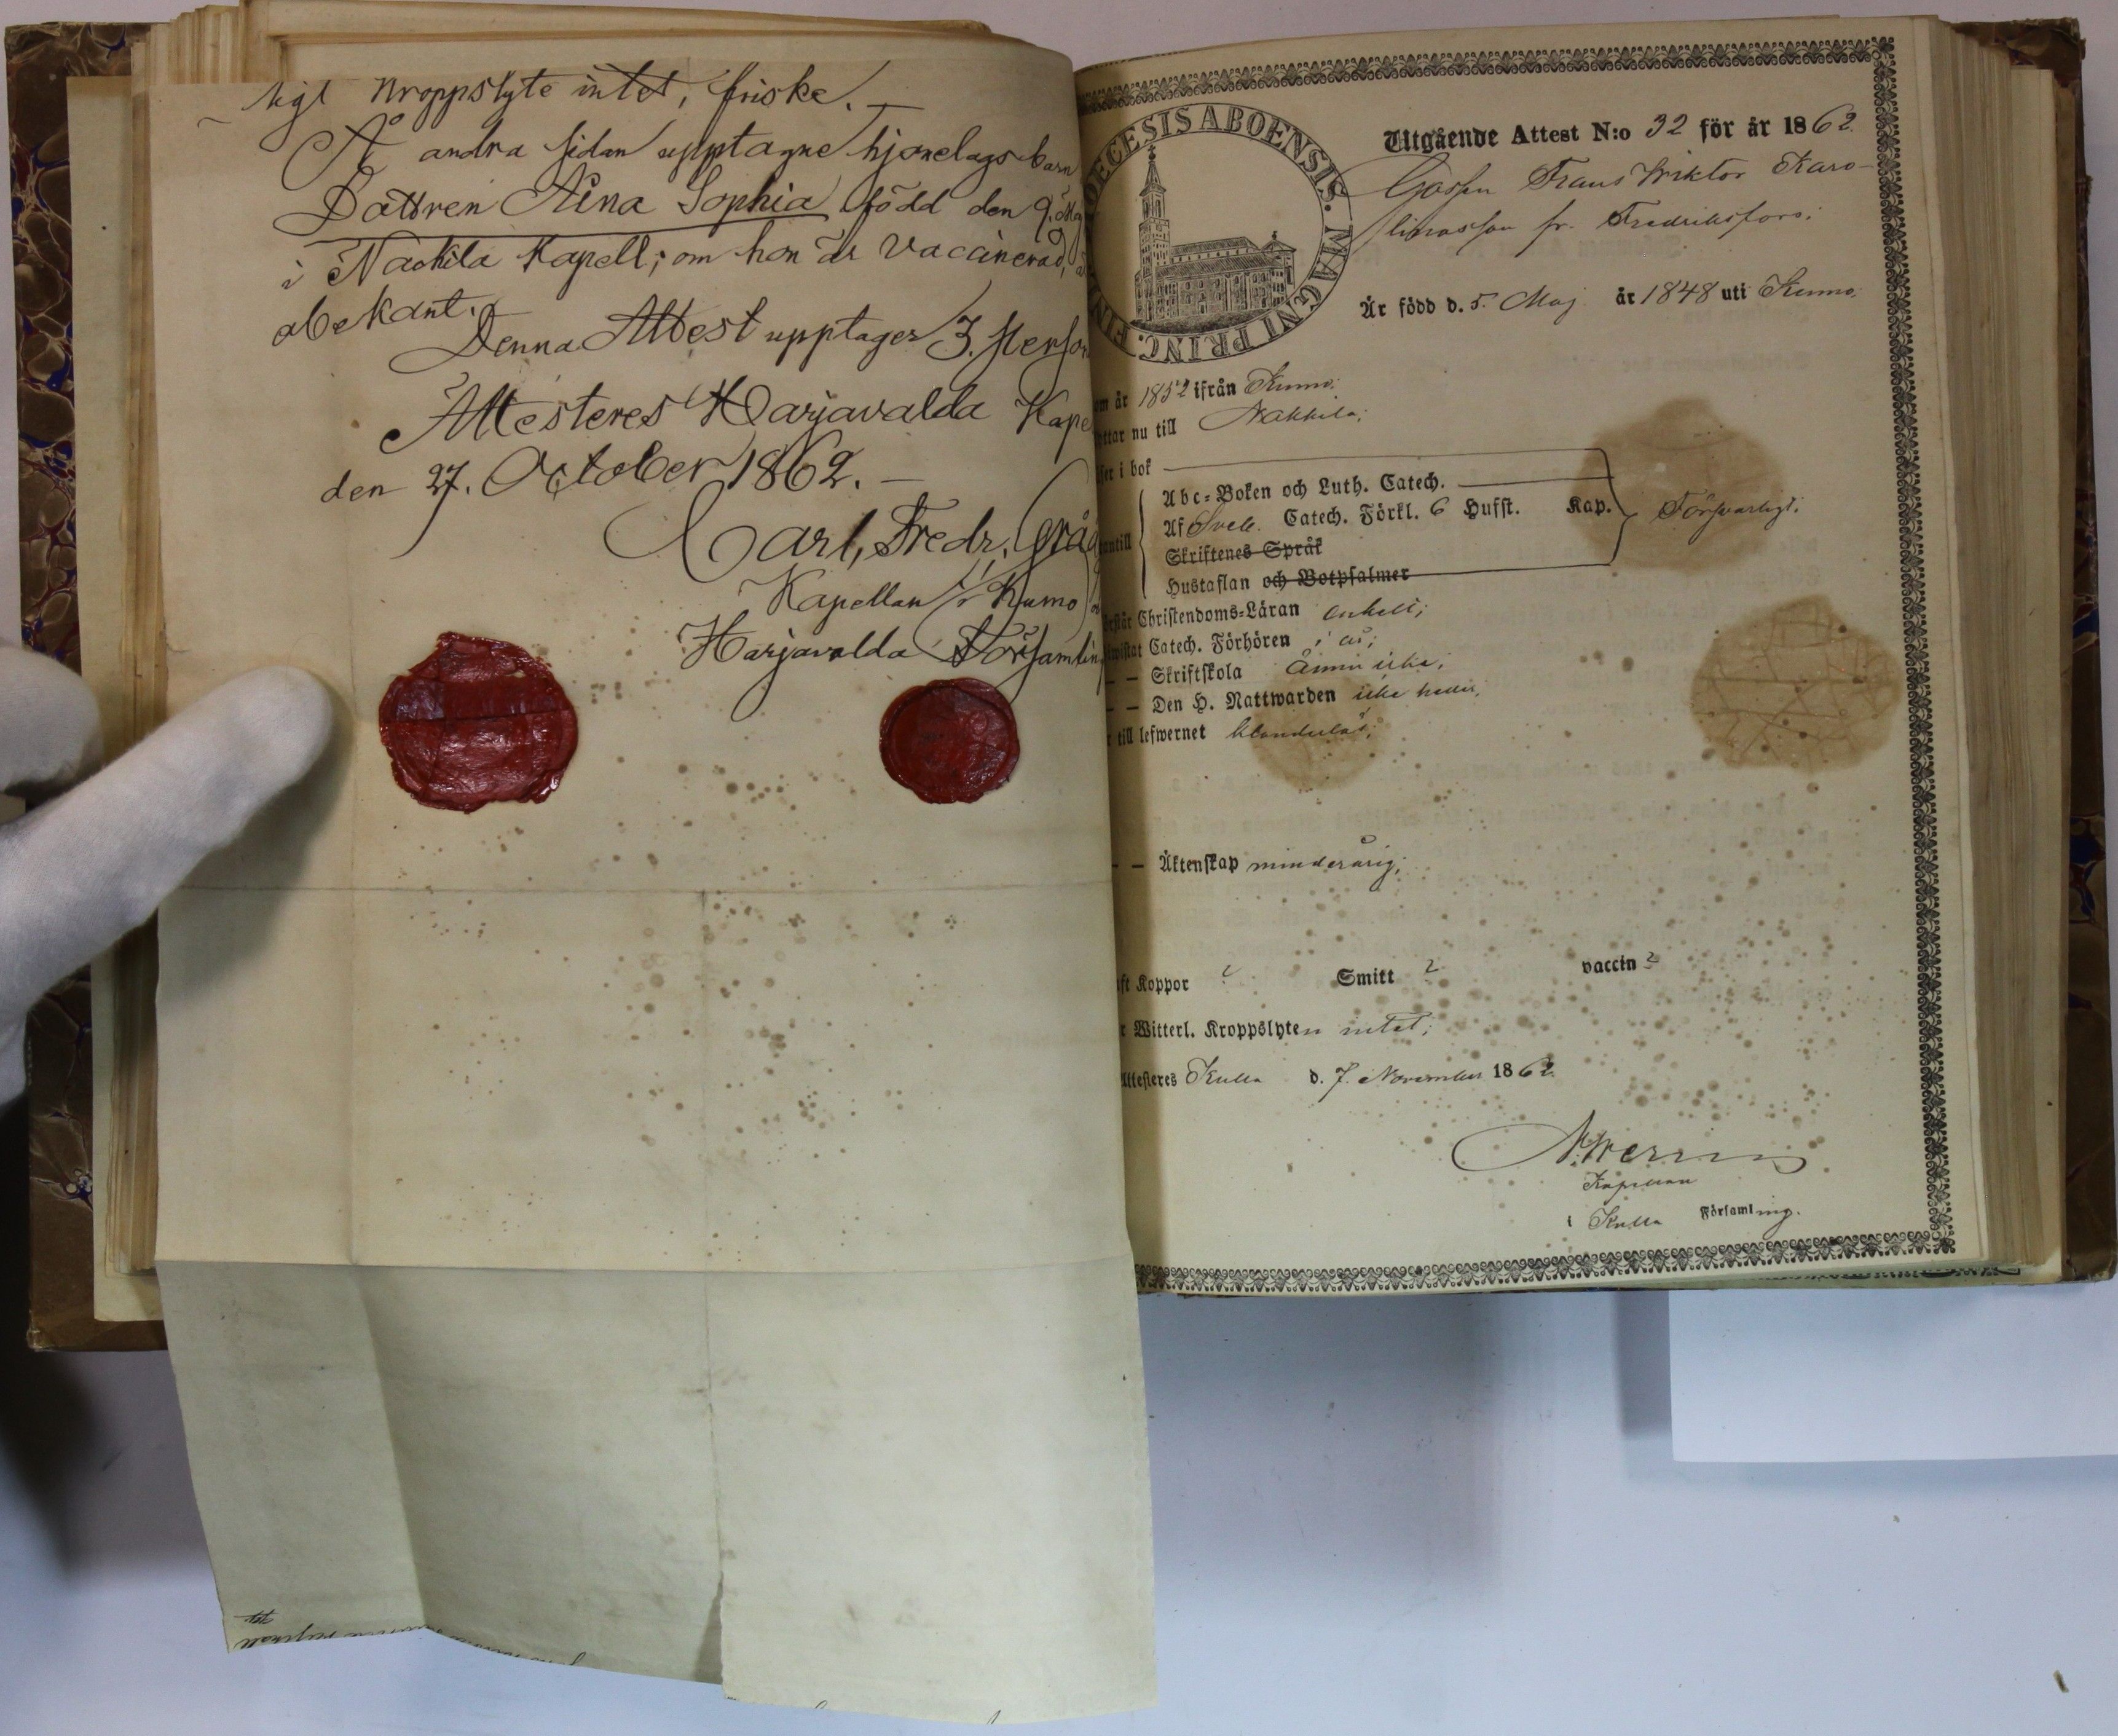 ligt Kroppslyte intet, friske. –
Å andra sidan upptagne hjonelags barn
Dottren Aina Sophia född den 9.
i Nackila Kapell; om hon är Vaccinerad,
obekant.
Denna Attest upptager 3. Person
Attesteres Harjavalda Kape
den 27. October 1862. –
Carl, Fredr, Grå
Kapellan i Kumo
Harjavalda Församlin
DIOECESIS ABOENSIS. MAGNI PRINC. FIN
Utgående Attest N:o 32 för år 1862.
Gossen Frans Wiktor Karo-
linasson fr. Fredriksfors;
Är född d. 5. Maj år 1848 uti Kumo;
om år 1852 ifrån Kumo;
ttar nu till Nakkila;
ser i bok
Abc-Boken och Luth. Catech.
Af Sveb. Catech. Förkl. 6 Hufst. Kap. Försvarligt;
antill
Skriftenes Språk
Hustaflan och Botpsalmer
rstår Christendoms-Läran enkelt;
wistat Catech. Förhören i år;
– – Skriftskola ännu icke;
– – Den H. Nattwarden icke heller;
r till lefwernet klanderlös;
– – Äktenskap minderårig;
ft Koppor ? Smitt ? vaccin ?
r Witterl. Kroppslyten intet;
Attesteres Kulla d. 7. November 1862.
Kapellan
i Kulla Församling.